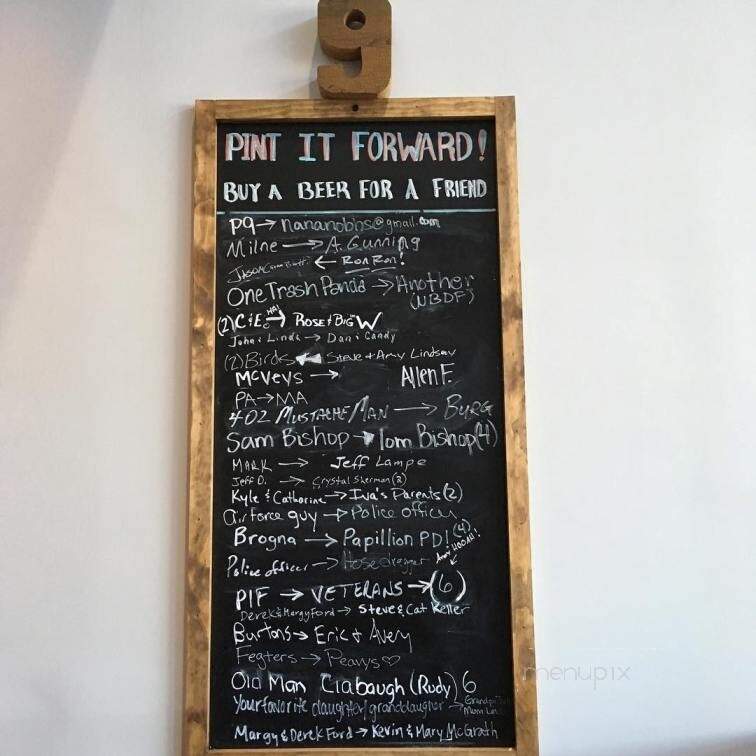 9
PINT IT FORWARD!
BUY A BEER FOR A FRIEND
PQ → nananobbs@gmail.com
Milne → A. Gunning
JASON ← RON RON!
One Trash Panda → Another
(UBDF)
(2) C&E → ROSE & BIG W
John & Linda → Dan & Candy
(2) Birds ← Steve & Amy Lindsay
McVeys → Allen F.
PA → MA
402 MUSTACHE MAN → BURG
Sam Bishop → Tom Bishop (4)
MARK → Jeff Lampe
Jeff D. → Crystal Sherman (2)
Kyle & Catharine → Iva's Parents (2)
Airforce guy → Police officer
Brogna → Papillion PD! (4)
Police officer → Hosedragger
PIF → VETERANS → (6)
Derek & Margy Ford → Steve & Cat Keller
Burtons → Eric & Avery
Fegters → Peavys ♡
Old Man Clabaugh (Rudy) 6
Your favorite daughter/granddaughter →
Margy & Derek Ford → Kevin & Mary McGrath
menupix